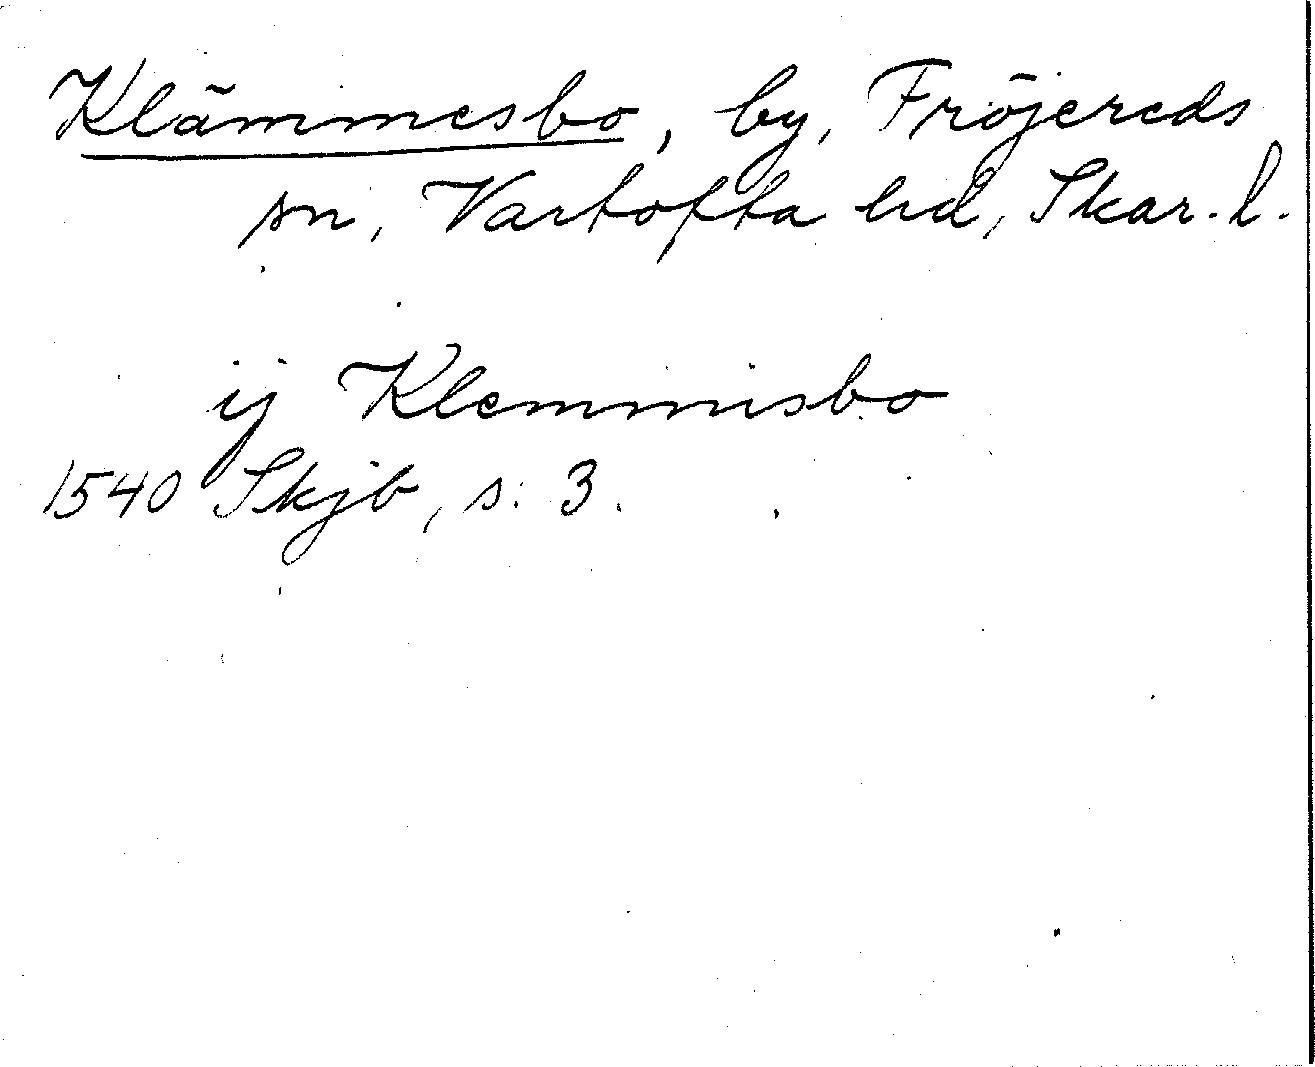 Klämmesbo, by, Fröjereds
sn, Vartofta hd, Skar. l.
ij Klemmisbo
1540 Skjb, s. 3.